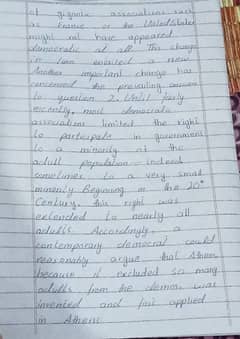 of gigantic associations such
as France or the United States
might not have appeared
democratic at all. This change
in turn entailed a new
Another important change has
concerned the prevailing answers
question 2. Until fairly
recently, most democratic
association limited the right
to participate in government
to a minority of the
adult population - indeed
sometimes to a very small
minority Beginning in the 20th
Century, this right was
extended to nearly all
adults. Accordingly, a
contemporary democrat could
reasonably argue that Athens
because it excluded so many
adults from the demos, was
invented and first applied
in Athens